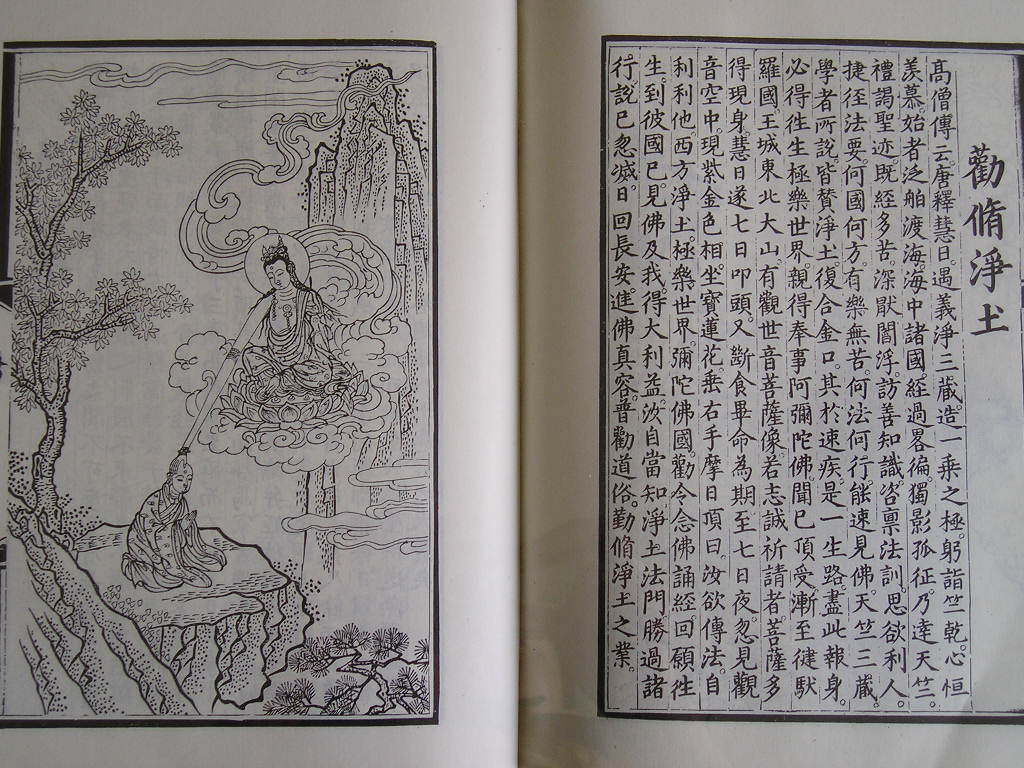 勸脩淨土
高僧傳云。唐釋慧日。遇義淨三藏。造一乘之極。躬詣竺乾。心恒
羨慕。始者泛舶渡海。海中諸國經過畧徧。獨影孤征。乃達天竺。
禮謁聖迹。既經多苦。深厭閻浮。訪善知識。咨稟法訓。思欲利人。
捷徑法要。何國何方。有樂無苦。何法何行。能速見佛。天竺三藏。
學者所說。皆贊淨土。復合金口。其於速疾。是一生路。盡此報身。
必得往生極樂世界。親得奉事阿彌陀佛。聞已頂受。漸至徤馱
羅國。王城東北大山。有觀世音菩薩像。若志誠祈請者。菩薩多
得現身。慧日遂七日叩頭。又斷食畢命為期。至七日夜。忽見觀
音空中。現紫金色相。坐寶蓮花。垂右手摩日頂曰。汝欲傳法。自
利利他。西方淨土。極樂世界。彌陀佛國。勸令念佛誦經。回願往
生。到彼國已。見佛及我。得大利益。汝自當知。淨土法門。勝過諸
行。說已忽滅。日回長安。進佛真容。普勸道俗。勤脩淨土之業。